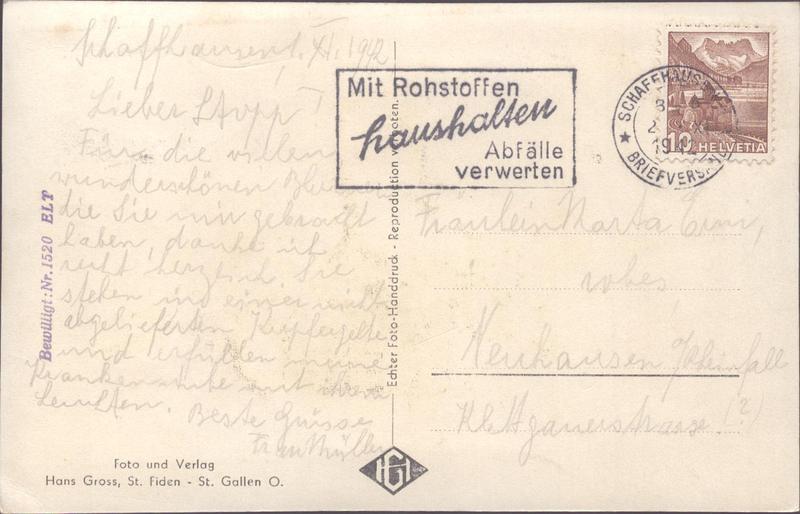 Schaffhausen, 1. XI. 1942
Lieber
Für die vielen
wunderschönen
die Sie mir gebracht
haben, danke ich
recht herzlich. Sie
stehen in einer nicht
abgelieferten
und erfüllen meine
Krankenstube mit ihrem
Leuchten. Beste Grüsse
Frau Müller
Bewilligt: Nr. 1520 ELT
Foto und Verlag
Hans Gross, St. Fiden - St. Gallen O.
Echter Foto-Handdruck - Reproduction verboten.
HG
Mit Rohstoffen
haushalten
Abfälle
verwerten
SCHAFFHAUSEN
BRIEFVERSAND
10 HELVETIA
Fräulein Marta
Neuhausen Rheinfall
Klettgauerstrasse (?)